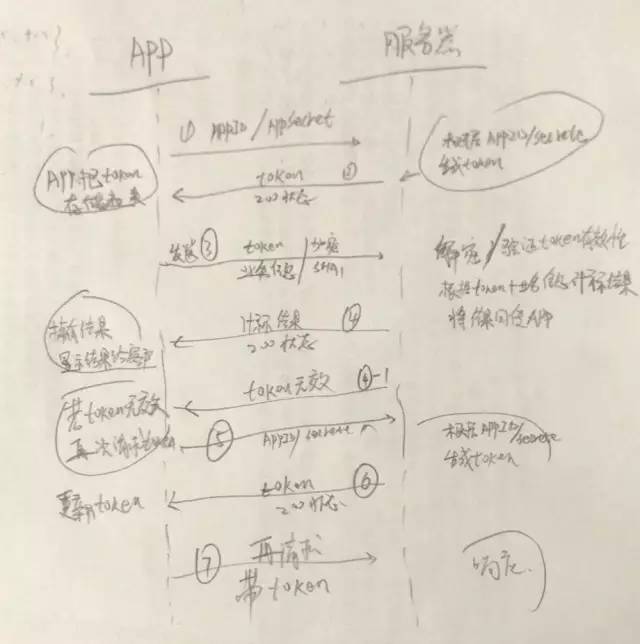 APP
服务器
① APPID / APPsecret
根据 APPID/secrete
生成token
token ②
200状态
APP把token
存储起来
发送 ③ token / 加密
业务信息 /
解密/验证token有效性
根据token+业务信息计算结果
将结果回复APP
计算结果 ④
200状态
结果
显示结果给客户
token无效 ④-1
若token无效
再次请求token
⑤ APPID/secrete
根据APPID/secrete
生成token
token ⑥
200状态
更新token
⑦ 再请求
带token
响应